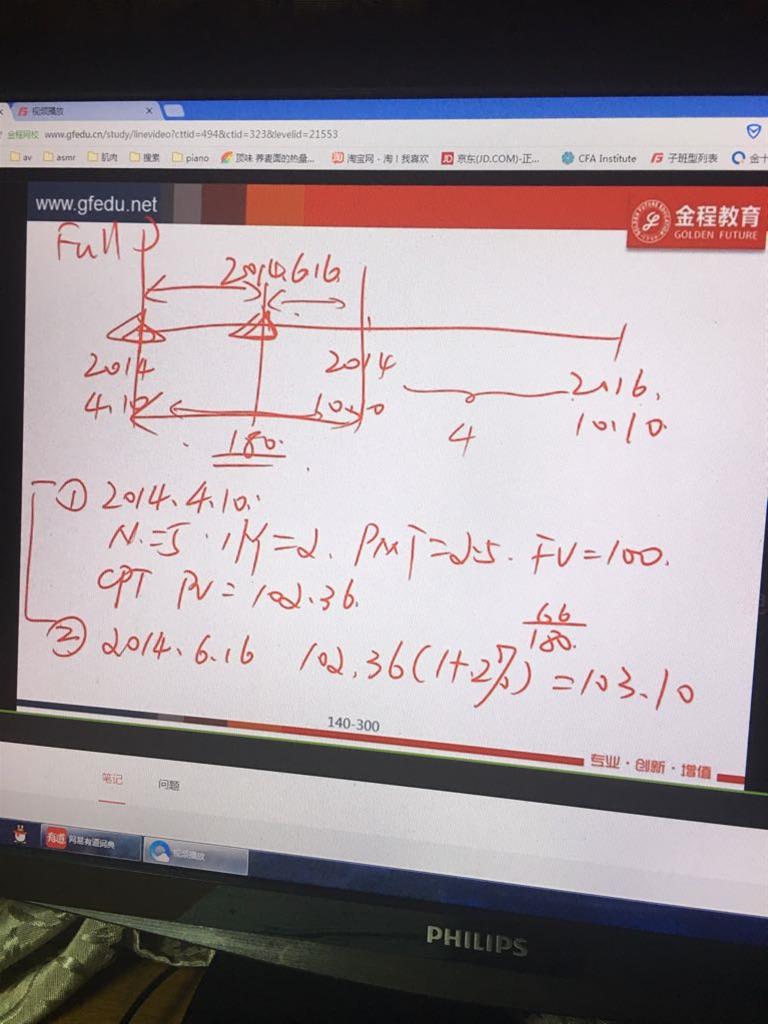 视频播放
金程网校 www.gfedu.cn/study/linevideo?cttid=494&ctid=323&levelid=21553
av asmr 肌肉 搜索 piano 顶味 荞麦面的热量... 淘宝网 - 淘！我喜欢 JD 京东(JD.COM)-正... CFA Institute 子班型列表 金十
www.gfedu.net
金程教育
GOLDEN FUTURE
Full P
2014.6.16
2014
4.10
2014
10.10
2016.
10.10.
180.
4
① 2014.4.10.
N=5. I/Y=2. PMT=2.5. FV=100.
CPT PV=102.36.
② 2014.6.16 102.36(1+2%)^66/180. =103.10
140-300
专业·创新·增值
笔记 问题
有道 网易有道词典 视频播放
PHILIPS